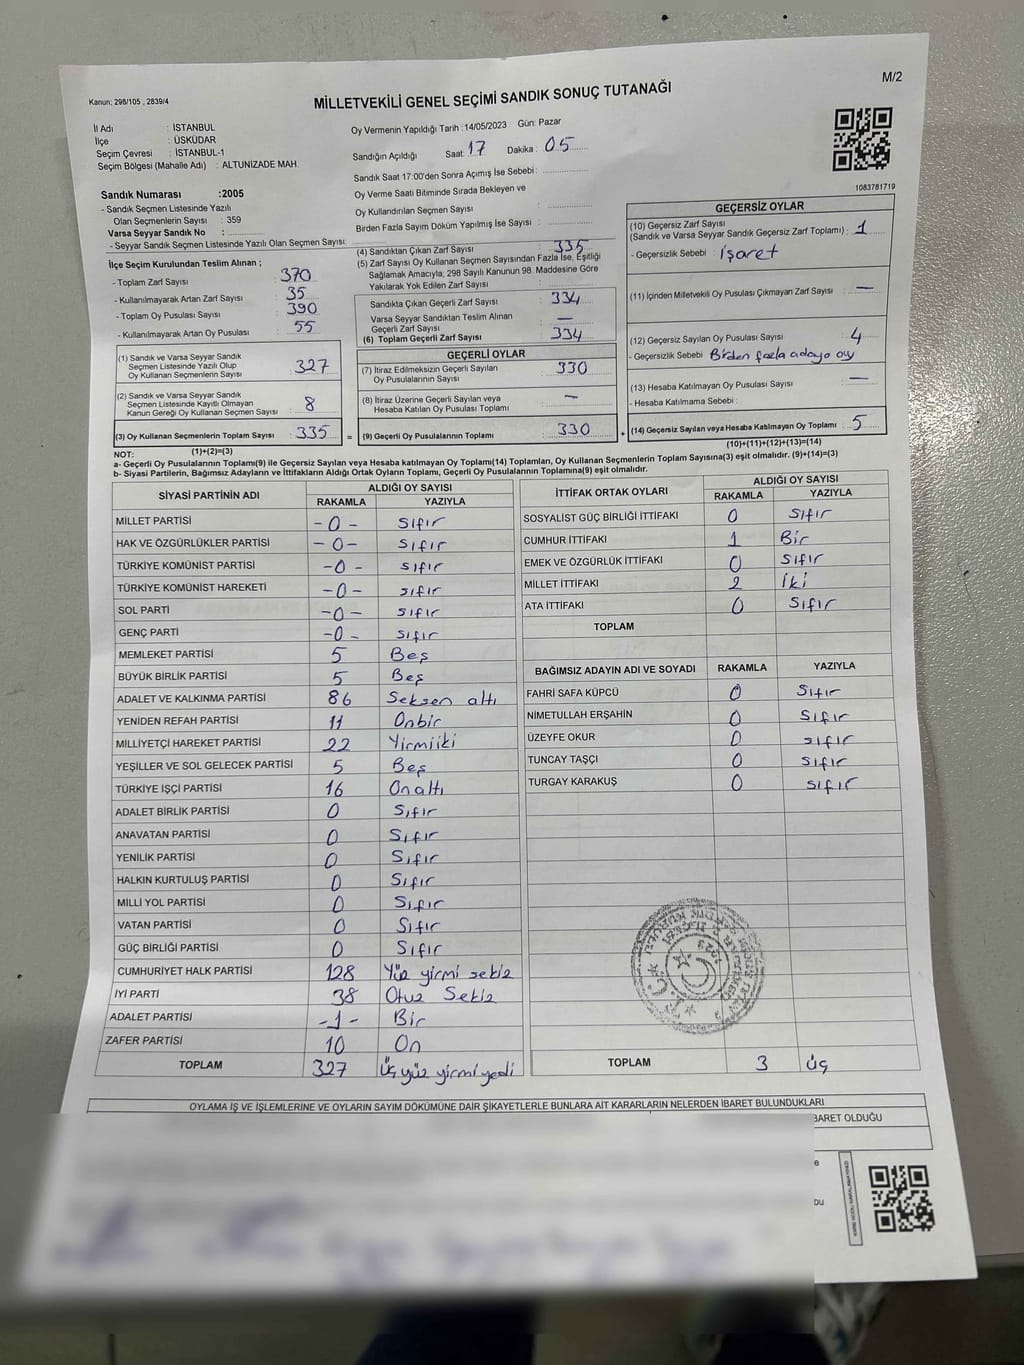 M/2
Kanun: 298/105 , 2839/4
MİLLETVEKİLİ GENEL SEÇİMİ SANDIK SONUÇ TUTANAĞI
İl Adı : İSTANBUL
İlçe : ÜSKÜDAR
Seçim Çevresi : İSTANBUL-1
Seçim Bölgesi (Mahalle Adı) : ALTUNİZADE MAH.
Sandık Numarası :2005
- Sandık Seçmen Listesinde Yazılı
Olan Seçmenlerin Sayısı : 359
Varsa Seyyar Sandık No :
- Seyyar Sandık Seçmen Listesinde Yazılı Olan Seçmen Sayısı:
Oy Vermenin Yapıldığı Tarih :14/05/2023 Gün: Pazar
Sandığın Açıldığı Saat: 17 Dakika : 05
Sandık Saat 17:00'den Sonra Açımış İse Sebebi:
Oy Verme Saati Bitiminde Sırada Bekleyen ve
Oy Kullandırılan Seçmen Sayısı :
Birden Fazla Sayım Döküm Yapılmış İse Sayısı :
1083781719
İlçe Seçim Kurulundan Teslim Alınan ;
- Toplam Zarf Sayısı : 370
- Kullanılmayarak Artan Zarf Sayısı : 35
- Toplam Oy Pusulası Sayısı : 390
- Kullanılmayarak Artan Oy Pusulası : 55
(1) Sandık ve Varsa Seyyar Sandık
Seçmen Listesinde Yazılı Olup
Oy Kullanan Seçmenlerin Sayısı : 327
(2) Sandık ve Varsa Seyyar Sandık
Seçmen Listesinde Kayıtlı Olmayan
Kanun Gereği Oy Kullanan Seçmen Sayısı : 8
(3) Oy Kullanan Seçmenlerin Toplam Sayısı : 335
(4) Sandıktan Çıkan Zarf Sayısı : 335
(5) Zarf Sayısı Oy Kullanan Seçmen Sayısından Fazla İse, Eşitliği
Sağlamak Amacıyla; 298 Sayılı Kanunun 98. Maddesine Göre
Yakılarak Yok Edilen Zarf Sayısı :
Sandıkta Çıkan Geçerli Zarf Sayısı : 334
Varsa Seyyar Sandıktan Teslim Alınan
Geçerli Zarf Sayısı : —
(6) Toplam Geçerli Zarf Sayısı : 334
GEÇERLİ OYLAR
(7) İtiraz Edilmeksizin Geçerli Sayılan
Oy Pusulalarının Sayısı : 330
(8) İtiraz Üzerine Geçerli Sayılan veya
Hesaba Katılan Oy Pusulası Toplamı : —
= (9) Geçerli Oy Pusulalarının Toplamı : 330 +
GEÇERSİZ OYLAR
(10) Geçersiz Zarf Sayısı
(Sandık ve Varsa Seyyar Sandık Geçersiz Zarf Toplamı) : 1
- Geçersizlik Sebebi : işaret
(11) İçinden Milletvekili Oy Pusulası Çıkmayan Zarf Sayısı : —
(12) Geçersiz Sayılan Oy Pusulası Sayısı : 4
- Geçersizlik Sebebi : Birden fazla adaya oy
(13) Hesaba Katılmayan Oy Pusulası Sayısı : —
- Hesaba Katılmama Sebebi :
(14) Geçersiz Sayılan veya Hesaba Katılmayan Oy Toplamı : 5
NOT: (1)+(2)=(3)
(10)+(11)+(12)+(13)=(14)
a- Geçerli Oy Pusulalarının Toplamı(9) ile Geçersiz Sayılan veya Hesaba katılmayan Oy Toplamı(14) Toplamları, Oy Kullanan Seçmenlerin Toplam Sayısına(3) eşit olmalıdır. (9)+(14)=(3)
b- Siyasi Partilerin, Bağımsız Adayların ve İttifakların Aldığı Ortak Oyların Toplamı, Geçerli Oy Pusulalarının Toplamına(9) eşit olmalıdır.
SİYASİ PARTİNİN ADI ALDIĞI OY SAYISI
RAKAMLA YAZIYLA
MİLLET PARTİSİ -0- Sıfır
HAK VE ÖZGÜRLÜKLER PARTİSİ -0- Sıfır
TÜRKİYE KOMÜNİST PARTİSİ -0- sıfır
TÜRKİYE KOMÜNİST HAREKETİ -0- sıfır
SOL PARTİ -0- sıfır
GENÇ PARTİ -0- sıfır
MEMLEKET PARTİSİ 5 Beş
BÜYÜK BİRLİK PARTİSİ 5 Beş
ADALET VE KALKINMA PARTİSİ 86 Seksen altı
YENİDEN REFAH PARTİSİ 11 Onbir
MİLLİYETÇİ HAREKET PARTİSİ 22 Yirmiiki
YEŞİLLER VE SOL GELECEK PARTİSİ 5 Beş
TÜRKİYE İŞÇİ PARTİSİ 16 Onaltı
ADALET BİRLİK PARTİSİ 0 Sıfır
ANAVATAN PARTİSİ 0 Sıfır
YENİLİK PARTİSİ 0 Sıfır
HALKIN KURTULUŞ PARTİSİ 0 Sıfır
MİLLİ YOL PARTİSİ 0 Sıfır
VATAN PARTİSİ 0 Sıfır
GÜÇ BİRLİĞİ PARTİSİ 0 Sıfır
CUMHURİYET HALK PARTİSİ 128 Yüz yirmi sekiz
İYİ PARTİ 38 Otuz Sekiz
ADALET PARTİSİ -1- Bir
ZAFER PARTİSİ 10 On
TOPLAM 327 Üç yüz yirmi yedi
İTTİFAK ORTAK OYLARI ALDIĞI OY SAYISI
RAKAMLA YAZIYLA
SOSYALİST GÜÇ BİRLİĞİ İTTİFAKI 0 Sıfır
CUMHUR İTTİFAKI 1 Bir
EMEK VE ÖZGÜRLÜK İTTİFAKI 0 Sıfır
MİLLET İTTİFAKI 2 İki
ATA İTTİFAKI 0 Sıfır
TOPLAM
BAĞIMSIZ ADAYIN ADI VE SOYADI RAKAMLA YAZIYLA
FAHRİ SAFA KÜPCÜ 0 Sıfır
NİMETULLAH ERŞAHİN 0 Sıfır
ÜZEYFE OKUR 0 sıfır
TUNCAY TAŞÇI 0 Sıfır
TURGAY KARAKUŞ 0 sıfır
TOPLAM 3 üç
OYLAMA İŞ VE İŞLEMLERİNE VE OYLARIN SAYIM DÖKÜMÜNE DAİR ŞİKAYETLERLE BUNLARA AİT KARARLARIN NELERDEN İBARET BULUNDUKLARI
BARET OLDUĞU